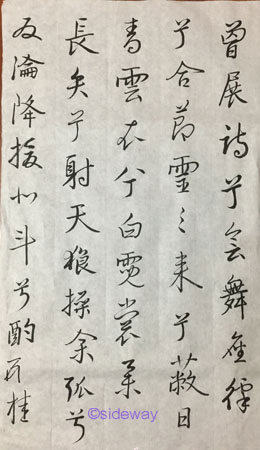 曾展詩兮会舞應律
兮合節靈之来兮蔽日
青雲衣兮白霓裳举
長矢兮射天狼操余弧兮
反淪降援北斗兮酌桂
©sideway